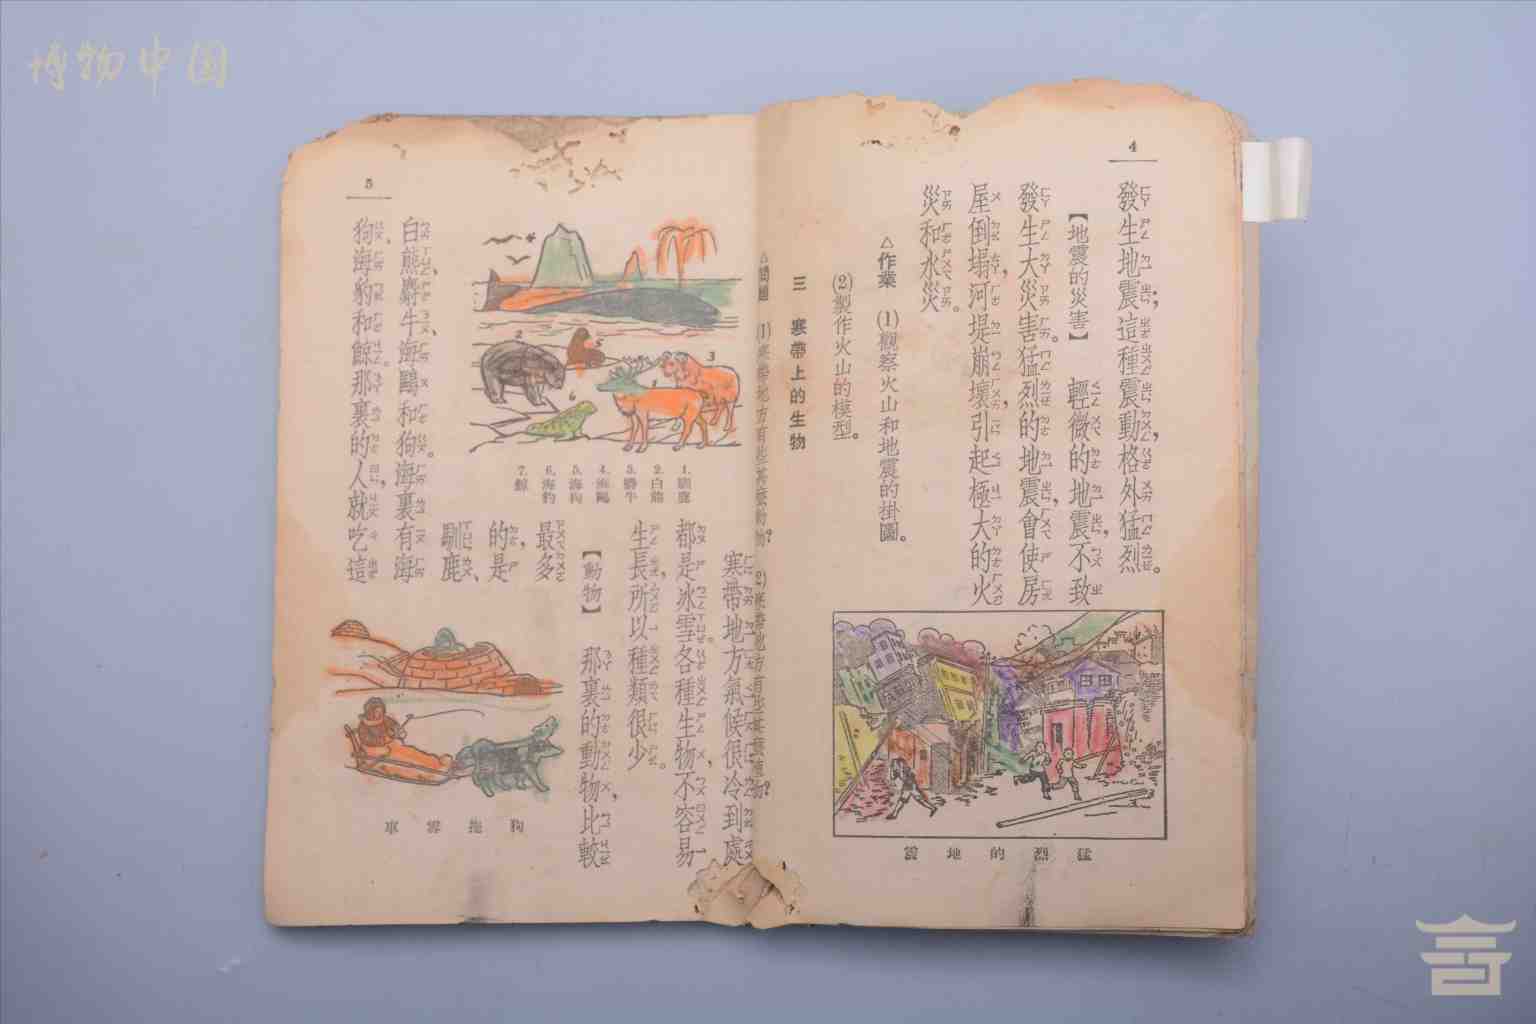 博物中国
4
發生地震；這種震動，格外猛烈。
【地震的災害】 輕微的地震，不致
發生大災害。猛烈的地震，會使房
屋倒塌，河堤崩壞，引起極大的火
災和水災。
△作業 (1)觀察火山和地震的掛圖。
(2)製作火山的模型。
猛烈的地震
三 寒帶上的生物
△問題 (1)寒帶地方有些甚麼動物？ (2)寒帶地方有些甚麼植物？
寒帶地方氣候很冷，到處
都是冰雪。各種生物，不容易
生長，所以種類很少。
【動物】 那裏的動物，比較
最多
的，是
馴鹿、
白熊、麝牛、海鷗和狗。海裏有海
狗、海豹和鯨。那裏的人，就吃這
1.馴鹿
2.白熊
3.麝牛
4.海鷗
5.海狗
6.海豹
7.鯨
狗拖雪車
5